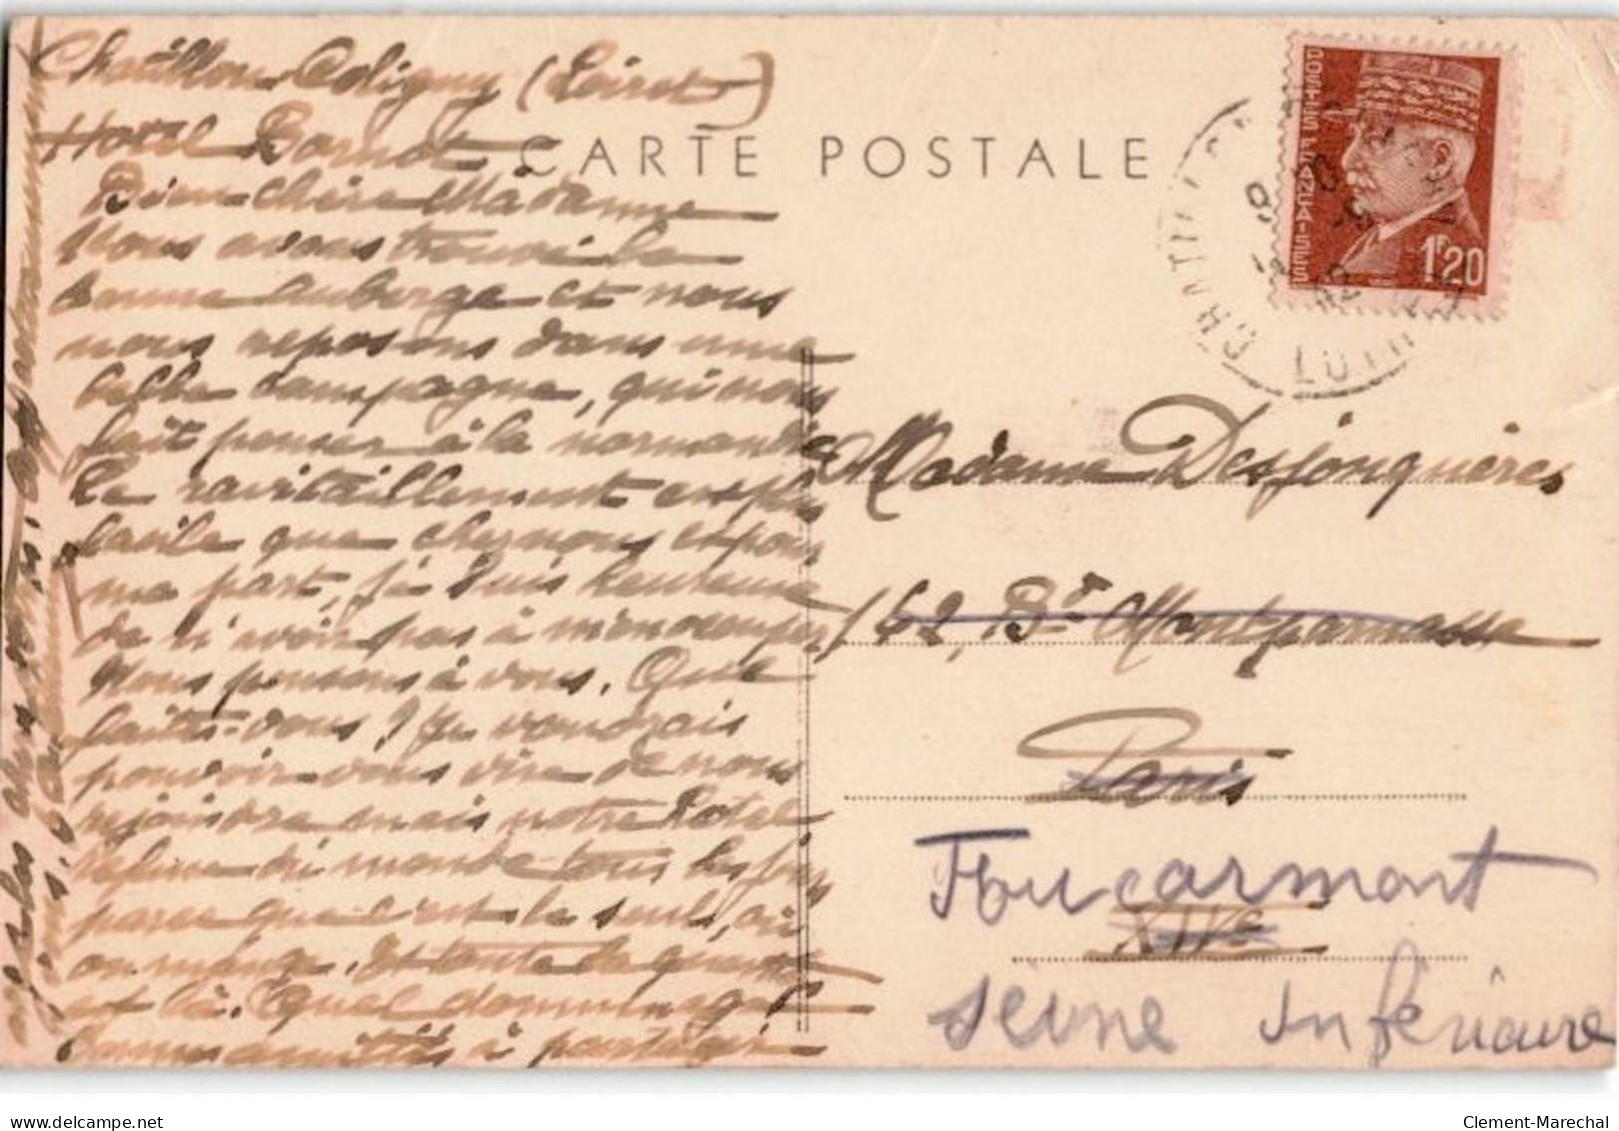 Chatillon-Coligny (Loiret)
Hotel Bornot
CARTE POSTALE
Bien chère Madame
Nous avons trouvé la
bonne auberge et nous
nous reposons dans une
belle campagne, qui nous
fait penser à la normandie
Le ravitaillement est plus
facile que chez nous et pour
ma part, je suis heureuse
de n'avoir pas à m'en occuper
Nous pensons à vous. Que
faites-vous? Je voudrais
pouvoir vous dire de nous
rejoindre mais notre hotel
refuse du monde tous les jours
parce que c'est le seul, où
on mange. Et toute la question
est là. Quel dommage!
Bonnes amitiés à partager
POSTES FRANÇAISES
1F20
Madame Desjonquères
162, Bd Montparnasse
Paris
XIVe
Foucarmont
Seine Inférieure
delcampe.net
Clement-Marechal